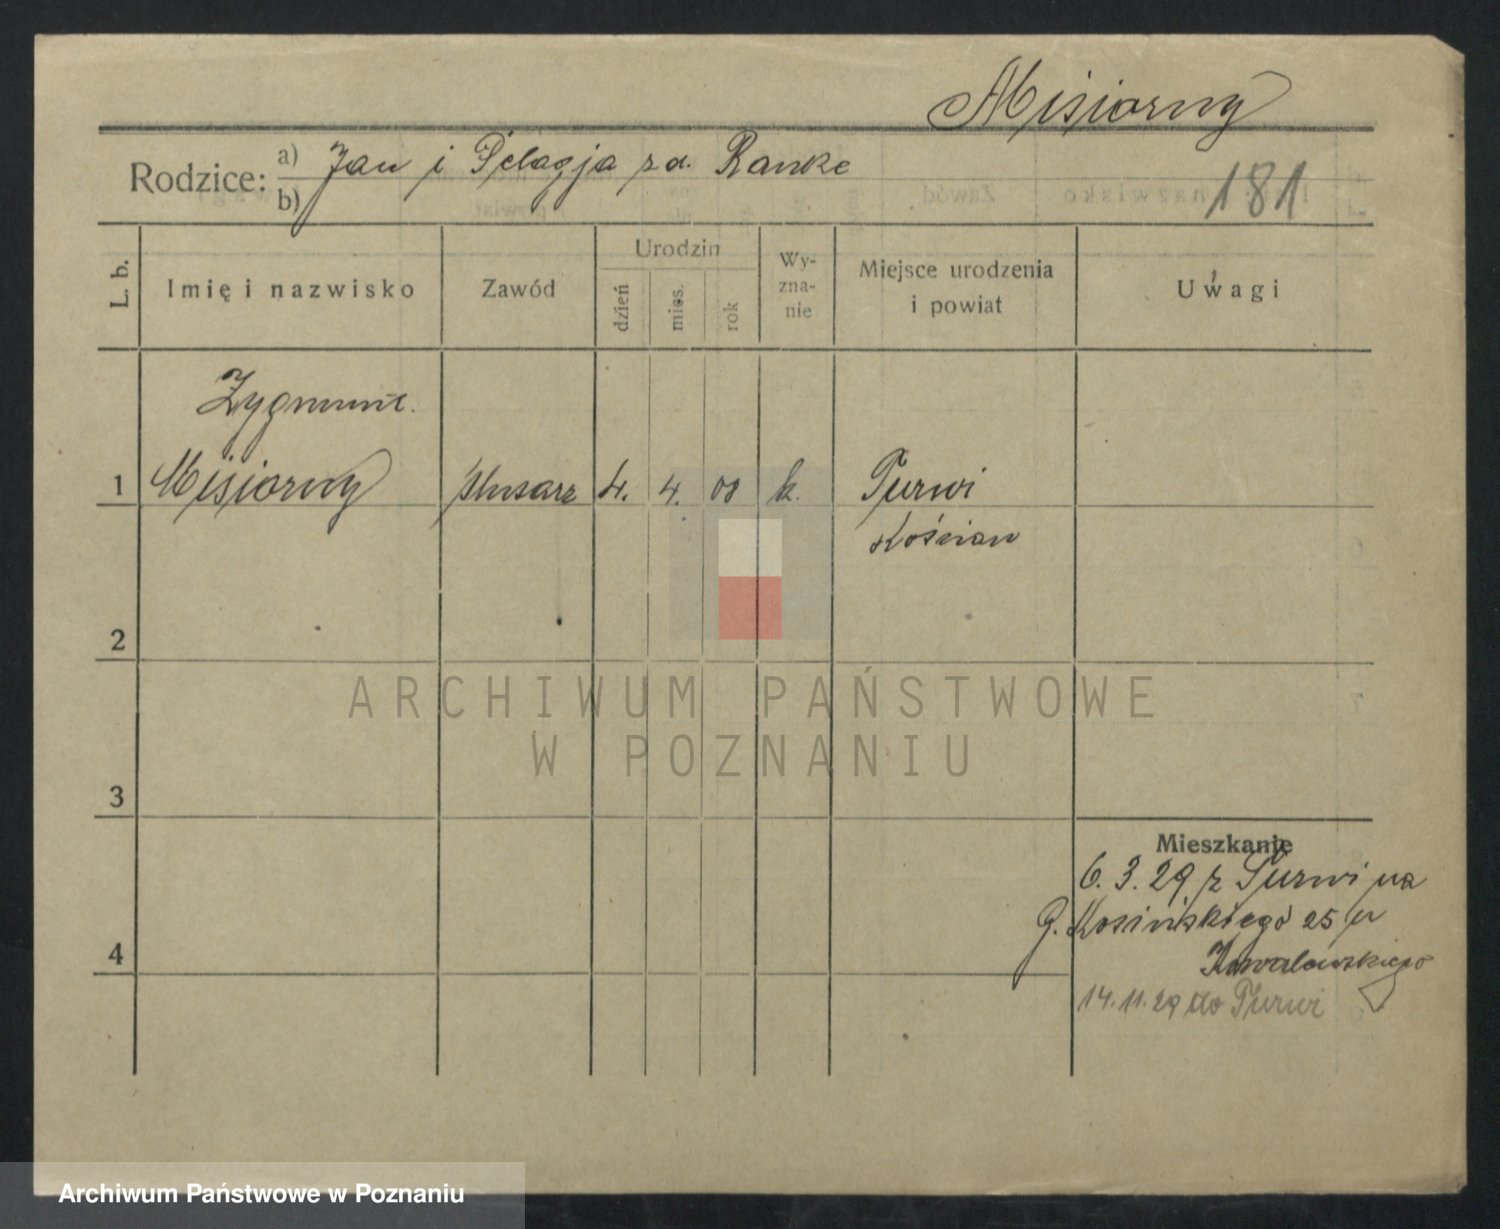 Misiorny
Rodzice: a) Jan i Pelagja zd. Ranke
b)
181
L. b.
Imię i nazwisko
Zawód
Urodzin
dzień
mies.
rok
Wy-
zna-
nie
Miejsce urodzenia
i powiat
Uwagi
Zygmunt.
1 Misiorny ślusarz 4. 4. 08 k. Turwi
Kościan
2
ARCHIWUM PAŃSTWOWE
W POZNANIU
3
Mieszkanie
6. 3. 29 z Turwi na
G. Kosińskiego 25 u
Kowalewskiego
4
14.11.29 do Turwi
Archiwum Państwowe w Poznaniu